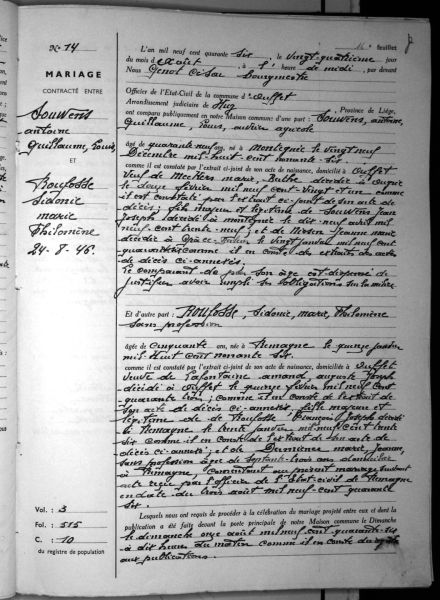 N° 14
MARIAGE
CONTRACTÉ ENTRE
Souwens
antoine
Guillaume, Louis
ET
Roufosse
Sidonie
marie
Philomène
24-8-46.
Vol. : 3
Fol. : 515
C. : 10
du registre de population
feuillet
L'an mil neuf cent quarante six, le vingt-quatrième jour
du mois d'août, à l' heure de midi, par devant
Nous
Officier de l'Etat-Civil de la commune d'Ouffet
Arrondissement judiciaire de Huy, Province de Liège,
ont comparu publiquement en notre Maison commune d'une part : Souwens, antoine,
Guillaume, Louis, ouvrier agricole
âgé de quarante neuf ans, né à le vingt neuf
Décembre mil-huit-cent nonante-six.
comme il est constaté par l'extrait ci-joint de son acte de naissance, domicilié à Ouffet
Veuf de marie, décédée à
le douze février mil neuf cent-vingt et un comme il
est constaté par l'extrait ci-joint de son acte de
décès ; fils majeur et légitime de Souwens Jean
Joseph décédé à le dix-neuf avril mil
neuf-cent trente-neuf ; et de Jeanne marie
décédée à le vingt janvier mil neuf cent
comme il en conste des extraits des actes
de décès ci-annexés.
Le comparant de par son âge est dispensé de
justifier avoir rempli ses obligations sur la milice.
Et d'autre part : Roufosse, Sidonie, marie, Philomène
sans profession
âgée de Cinquante ans, née à le quinze
mil-huit cent nonante six.
comme il est constaté par l'extrait ci-joint de son acte de naissance, domiciliée à Ouffet
Veuve de amand, auguste Joseph
décédé à Ouffet le quinze février mil neuf cent
quarante trois ; comme il en conste de l'extrait de
son acte de décès ci-annexé, fille majeure et
légitime de Roufosse François Joseph décédé
à le trente janvier mil neuf cent trente
six comme il en conste de l'extrait de son acte de
décès ci-annexé ; et de marie, Jeanne,
sans profession âgée de septante-trois ans domiciliée
à consentant au présent mariage suivant
acte reçu par l'officier de l'état-civil de
en date du trois août mil neuf cent quarante
six.
Lesquels nous ont requis de procéder à la célébration du mariage projeté entre eux et dont la
publication a été faite devant la porte principale de notre Maison commune le Dimanche
le dimanche onze août mil neuf cent quarante-six
à dix heures du matin comme il en conste du registre
aux publications.